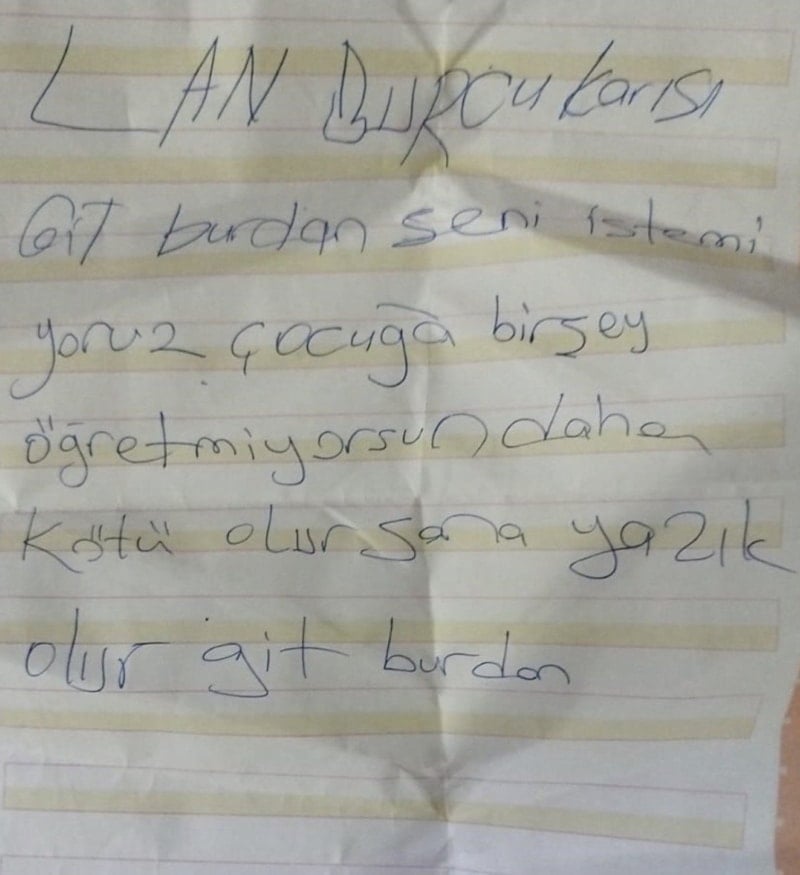 LAN BURCU karısı
Git burdan seni istemi
yoruz çocuğa birşey
öğretmiyorsun daha
kötü olur sana yazık
olur git burdan